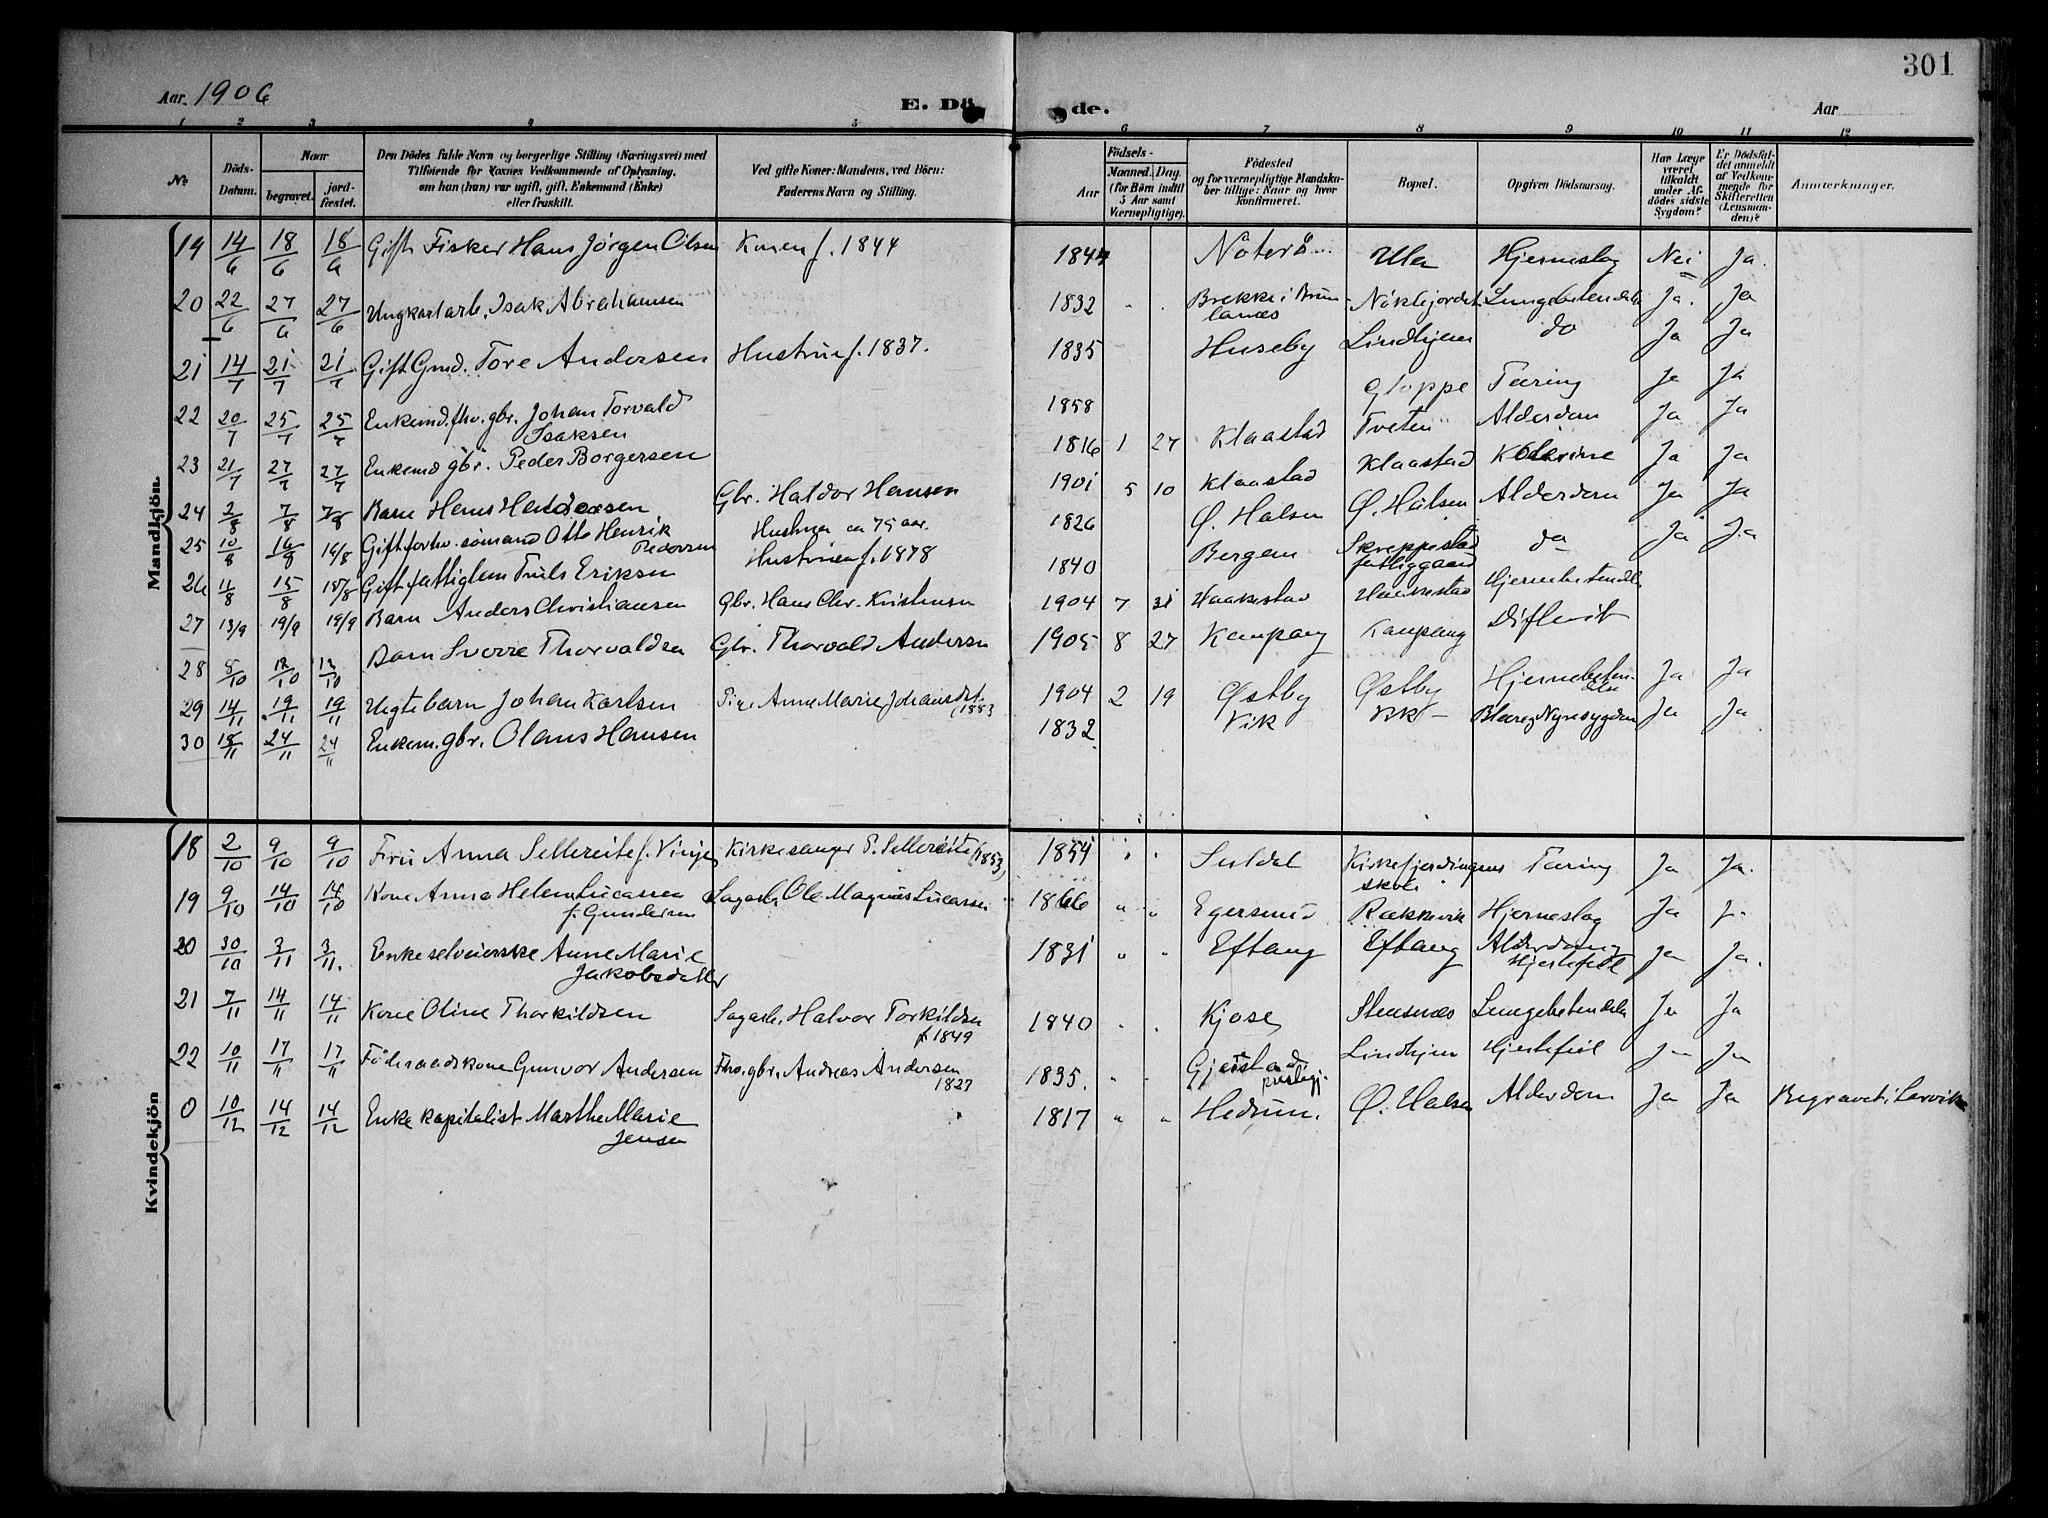 301
Aar. 1906
E. Dö de.
Aar
1 2 3 4 5 6 7 8 9 10 11 12
No.
Döds-Datum.
Naar
begravet.
jord-fæstet.
Den Dödes fulde Navn og borgerlige Stilling (Næringsvei) med
Tilföiende for Voxnes Vedkommende af Oplysning,
om han (hun) var ugift, gift, Enkemand (Enke)
eller fraskilt.
Ved gifte Koner: Mandens, ved Börn:
Faderens Navn og Stilling.
Födsels-
Aar
Maaned. Dag.
(for Börn indtil
5 Aar samt
Værnepligtige).
Födested
og for værnepligtige Mandska-
ber tillige: Naar og hvor
Konfirmeret.
Bopæl.
Opgiven Dödsaarsag.
Har Læge
været
tilkaldt
under Af-
dödes sidste
Sygdom?
Er Dödsfal-
det anmeldt
af Vedkom-
mende for
Skifteretten
(Lensman-
den)?
Anmærkninger.
Mandkjön.
19 14/6 18/6 18/6 Gift Fisker Hans Jørgen Olsen Konen f. 1844 1844 Nøterø Ula Hjerneslag Nei Ja.
20 22/6 27/6 27/6 Ungkarl arb. Isak Abrahamsen 1832 Brekke i Brun-
lanæs Lungebetendelse Ja. Ja
21 14/7 21/7 21/7 Gift Gmd. Tore Andersen Hustrue f. 1837. 1835 Huseby Lindhjem do Ja Ja
22 20/7 25/7 25/7 Enkemd. fhv. gbr. Johan Torvald
Isaksen 1858 Gloppe Tæring Ja Ja
23 21/7 27/7 27/7 Enkemd gbr. Peder Borgersen 1816 1 27 Klaastad Tveten Alderdom Ja Ja
24 2/8 7/8 7/8 Barn Hans Gbr. Haldor Hansen 1901 5 10 Klaastad Klaastad Kolerine Ja Ja
25 10/8 16/8 16/8 Gift forhv. sømand Otto Henrik
Pedersen Hustruen ca 75 aar. 1826 Ø. Halsen Ø. Halsen Alderdom Ja Ja
26 11/8 15/8 18/8 Gift fattiglem Truls Eriksen Hustruen f. 1878 1840 Bergem Skreppestad
fattiggaard do Ja Ja
27 13/9 19/9 19/9 Barn Anders Christiansen Gbr. Hans Chr. Kristensen 1904 7 31 Haakestad Haakestad Hjernebetendel.
28 8/10 12/10 12/10 Barn Sverre Thorvaldsen Gbr. Thorvald Andersen 1905 8 27 Kaupang Kaupang Difterit
29 14/11 19/11 19/11 Uegte barn Johan Karlsen Pige Anne Marie Johansdt.
f. 1883 1904 2 19 Østby Østby Hjernebeten-
delse Ja Ja
30 15/11 24/11 24/11 Enkem. gbr. Olaus Hansen 1832 Vik Vik Blæreg Nyresygdom Ja Ja
Kvindekjön
18 2/10 9/10 9/10 Fru Anna Sellereite f. Vinje Kirkesanger P. Sellereite (1853) 1854 " " Suldal Kirkefjerdingens
skole Tæring Ja Ja.
19 9/10 14/10 14/10 Kone Anna Helene Lucassen
f. Gundersen Sagarb. Ole Magnus Lucassen 1866 " " Egersund Rækkevik Hjerneslag Ja J.
20 30/10 3/11 3/11. Enke selveierske Anne Marie
Jakobsdatter 1831 " " Eftang Eftang Alderdom og
Hjertefeil Ja Ja.
21 7/11 14/11 14/11 Kone Oline Thorkildsen Sagarb. Halvor Torkildsen
f 1849 1840 " " Kjose Stensnæs Lungebetendelse Ja Ja
22 10/11 17/11 17/11 Föderaadskone Gunvor Andersen Fhv. gbr. Andreas Andersen
1827 1835. " " Gjerstad
prestegj. Lindhjem Hjertefeil Ja Ja
0 10/12 14/12 14/12 Enke kapitalist Marthe Marie
Jensen 1817 " " Hedrum. Ø. Halsen Alderdom Ja Ja Begravet i Larvik